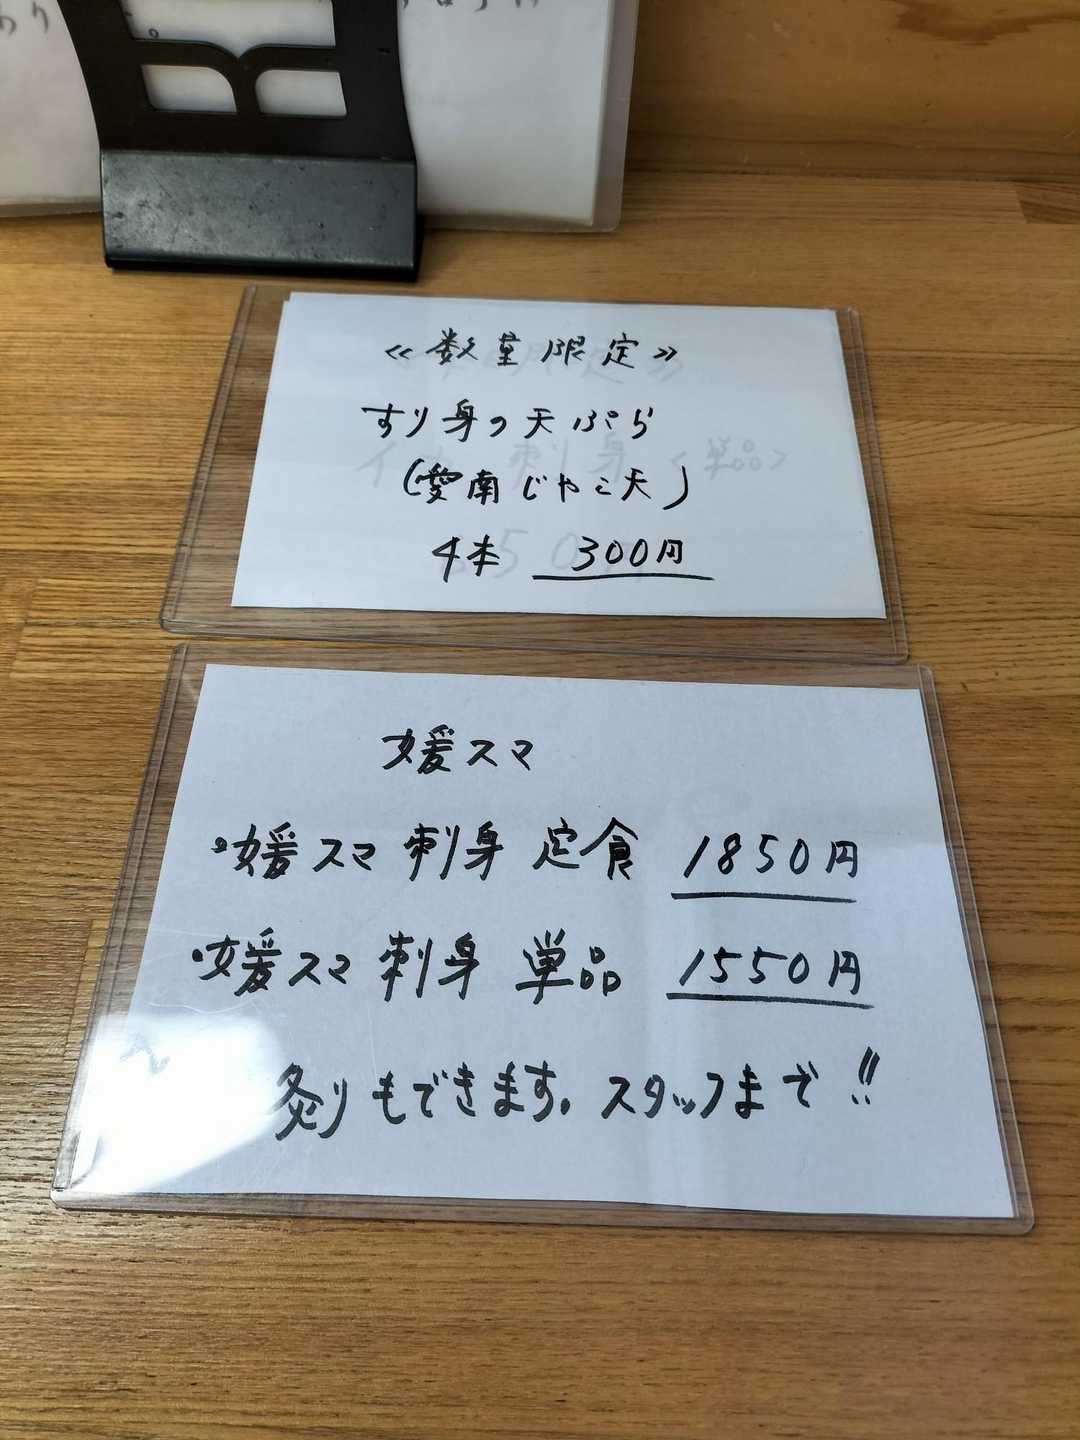 ≪数量限定≫
すり身の天ぷら
(愛南じゃこ天)
4本 300円
媛スマ
・媛スマ刺身 定食 1850円
・媛スマ刺身 単品 1550円
炙りもできます。スタッフまで!!